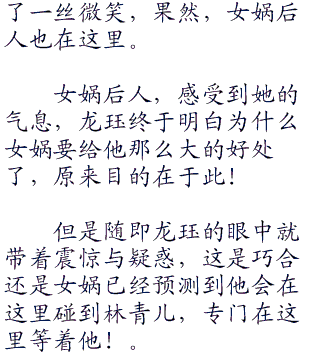 了一丝微笑，果然，女娲后
人也在这里。
女娲后人，感受到她的
气息，龙珏终于明白为什么
女娲要给他那么大的好处
了，原来目的在于此！
但是随即龙珏的眼中就
带着震惊与疑惑，这是巧合
还是女娲已经预测到他会在
这里碰到林青儿，专门在这
里等着他！。